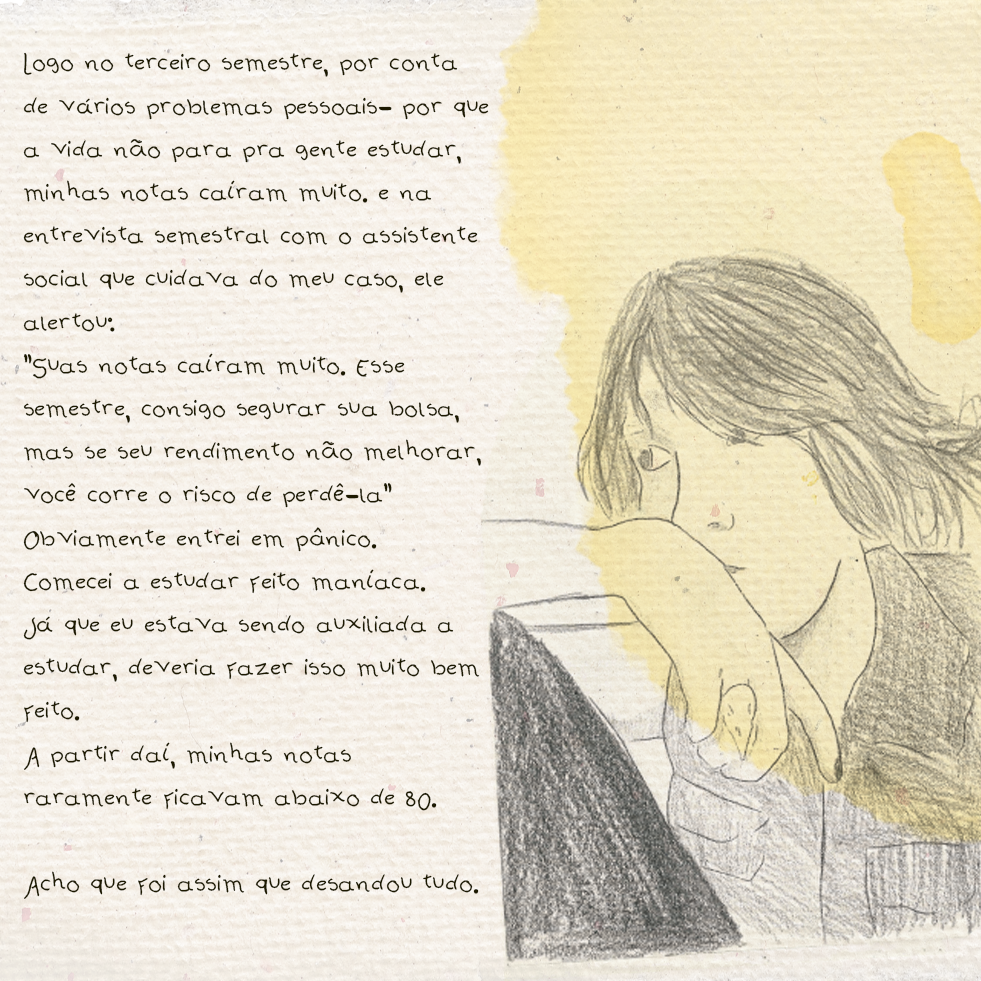 Logo no terceiro semestre, por conta
de vários problemas pessoais- por que
a vida não para pra gente estudar,
minhas notas caíram muito. e na
entrevista semestral com o assistente
social que cuidava do meu caso, ele
alertou:
"Suas notas caíram muito. Esse
semestre, consigo segurar sua bolsa,
mas se seu rendimento não melhorar,
você corre o risco de perdê-la"
Obviamente entrei em pânico.
Comecei a estudar feito maníaca.
Já que eu estava sendo auxiliada a
estudar, deveria fazer isso muito bem
feito.
A partir daí, minhas notas
raramente ficavam abaixo de 80.
Acho que foi assim que desandou tudo.